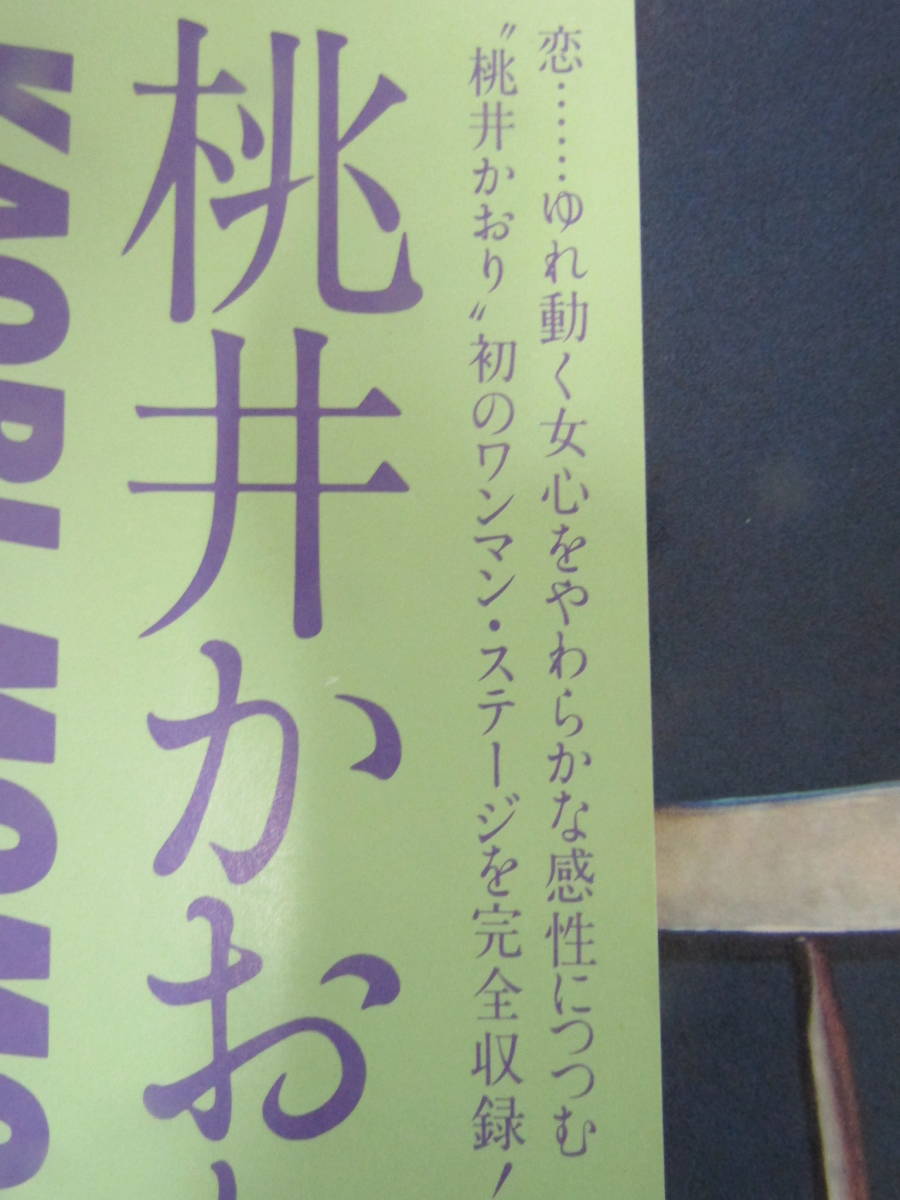 恋……ゆれ動く女心をやわらかな感性につつむ
〝桃井かおり〟初のワンマン・ステージを完全収録！
桃井かお
KAORI MOMO